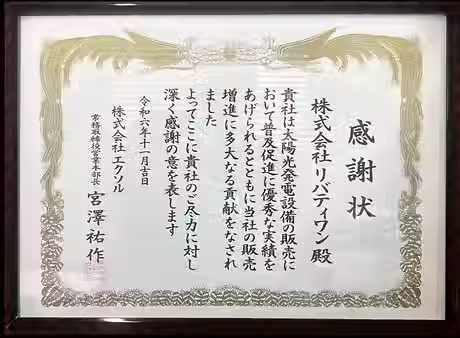 感謝状
株式会社 リバティワン 殿
貴社は太陽光発電設備の販売に
おいて普及促進に優秀な実績を
あげられるとともに当社の販売
増進に多大なる貢献をなされ
ました
よってここに貴社のご尽力に対し
深く感謝の意を表します
令和六年十一月吉日
株式会社 エクソル
常務取締役営業本部長 宮澤祐作